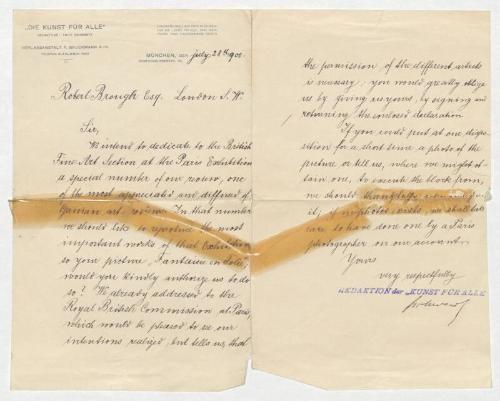 "DIE KUNST FÜR ALLE"
VERLAGSANSTALT F. BRUCKMANN A.-G.
MÜNCHEN, den July 28th 1900.
Robert Brough Esq. London S.W.
Sir,
We intend to dedicate to the British
Fine Art Section at the Paris Exhibition
a special number of our review, one
of the most appreciated and diffused of
German art review. In that number
we should like to reproduce the most
important works of that Exhibition,
so your picture, Fantaisie en
would you kindly authorize us to do
so? We already addressed to the
Royal British Commission at Paris,
which would be pleased to see our
intentions realized, but tells us, that
the permission of the different artists
is necessary; you would greatly oblige
us by giving us yours, by signing and
returning the enclosed declaration.
If you could put at our dispo-
sition for a short time a photo of the
picture or tell us, where we might ob-
tain one, to execute the block from,
we should thankfully
it; if no photo exists, we shall take
care to have done one by a Paris
photographer on our account.
Yours
very respectfully
REDAKTION der „KUNST FÜR ALLE